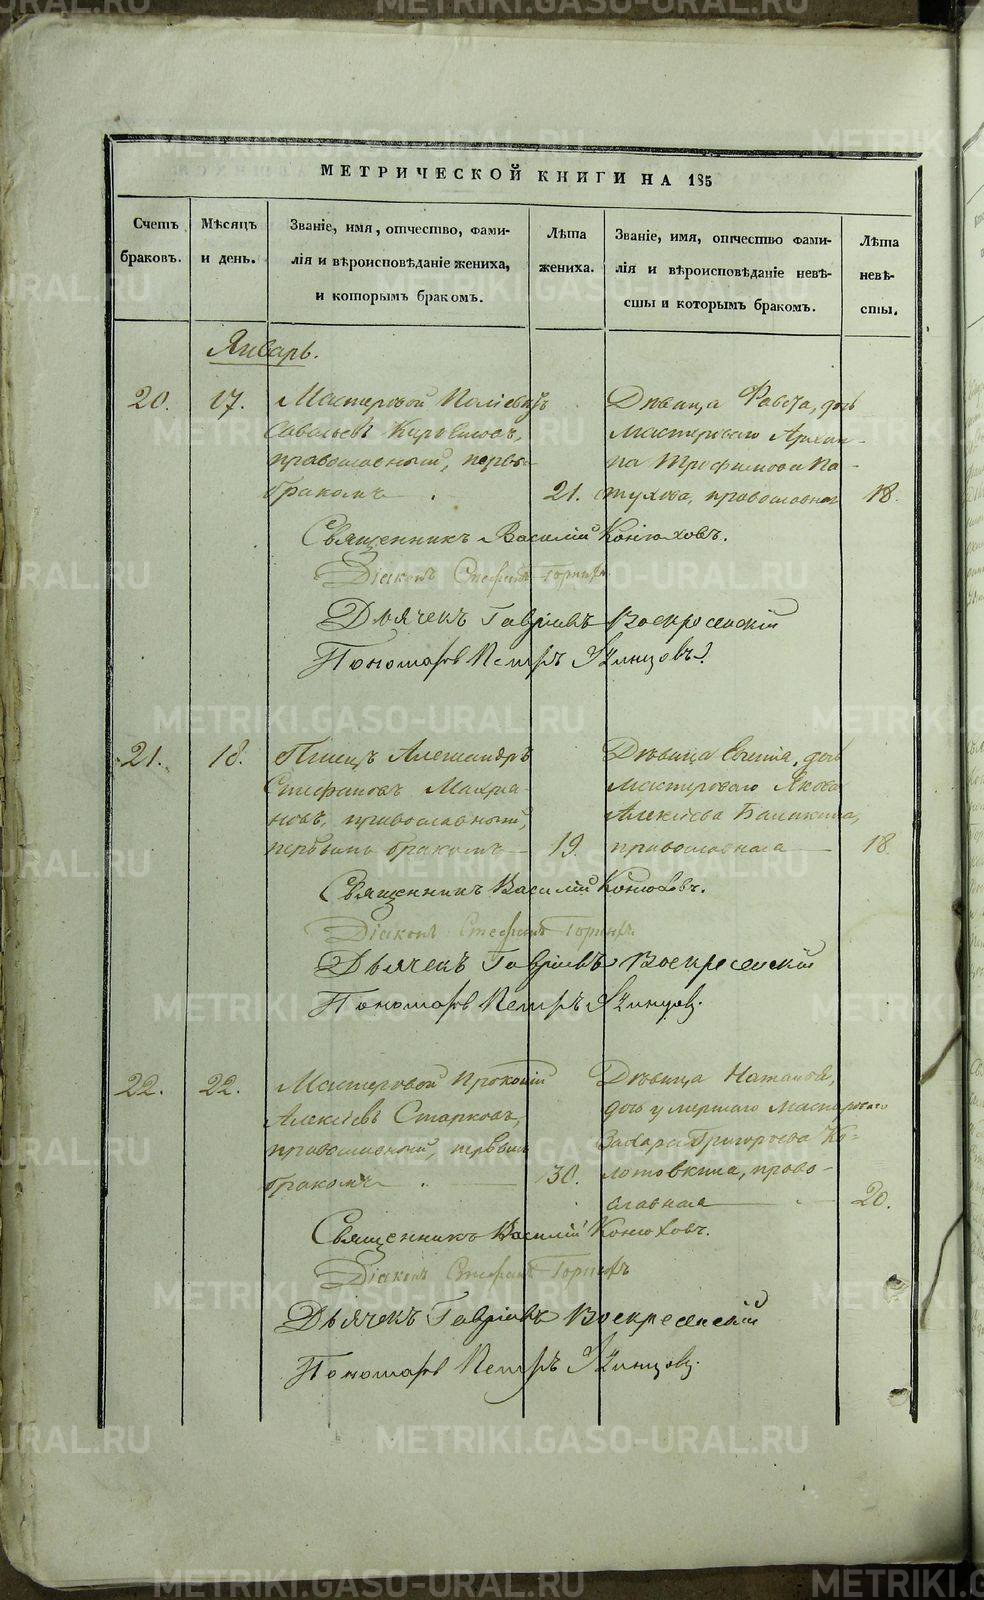 МЕТРИЧЕСКОЙ КНИГИ НА 185
Счетъ браковъ.
Мѣсяцъ и день.
Званіе, имя, отчество, фами-
лія и вѣроисповѣданіе жениха,
и которымъ бракомъ.
Лѣта жениха.
Званіе, имя, отчество фами-
лія и вѣроисповѣданіе невѣ-
сты и которымъ бракомъ.
Лѣта невѣ-
сты.
Январь.
20.
17.
Мастеровой
Савельевъ
православный, первы
бракомъ
21.
Дѣвица дочь
мастероваго Архи
па Трофимова Па-
стухова, православная
18.
Священникъ Василій Конюховъ.
Діаконъ Стефанъ
Дьячекъ Гавріилъ Воскресенскій
Пономарь Петръ
21.
18.
Писецъ Александръ
Стефановъ
новъ, православный,
первымъ бракомъ
19.
Дѣвица Евгенія, дочь
мастероваго Якова
Алексѣева Балакина,
православная
18.
Священникъ Василій Конюховъ.
Діаконъ Стефанъ
Дьячекъ Гавріилъ Воскресенскій
Пономарь Петръ
22.
22.
Мастеровой Прокопій
Алексѣевъ Старковъ,
православный, первымъ
бракомъ
30.
Дѣвица Наталья,
дочь умершаго Мастероваго
Захара Григорьева Ко-
лотовкина, право-
славная
20.
Священникъ Василій Конюховъ.
Діаконъ Стефанъ
Дьячекъ Гавріилъ Воскресенскій
Пономарь Петръ
METRIKI.GASO-URAL.RU